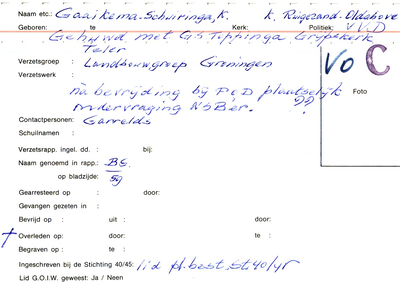 Naam etc.: Gaaikema-Schuringa, K. k. Ruigezand-Oldehove
Geboren: te Kerk: Politiek: V.V.D
Gehuwd met G.S. Tippinga Grijpskerk
Teler
Verzetsgroep : Landbouwgroep Groningen
Verzetswerk
na bevrijding bij P.O.D plaatselijk
ondervraging NSBer. ??
VO C
Foto
Contactpersonen: Garrelds
Schuilnaam :
Verzetsrapp. ingel. dd. : bij:
Naam genoemd in rapp.: BS.
op bladzijde: 59
Gearresteerd op : door:
Gevangen gezeten in :
Bevrijd op : uit : door:
† Overleden op: door: te :
Begraven op : te :
Ingeschreven bij de Stichting 40/45: lid pl. best. St. 40/45
Lid G.O.I.W. geweest: Ja / Neen